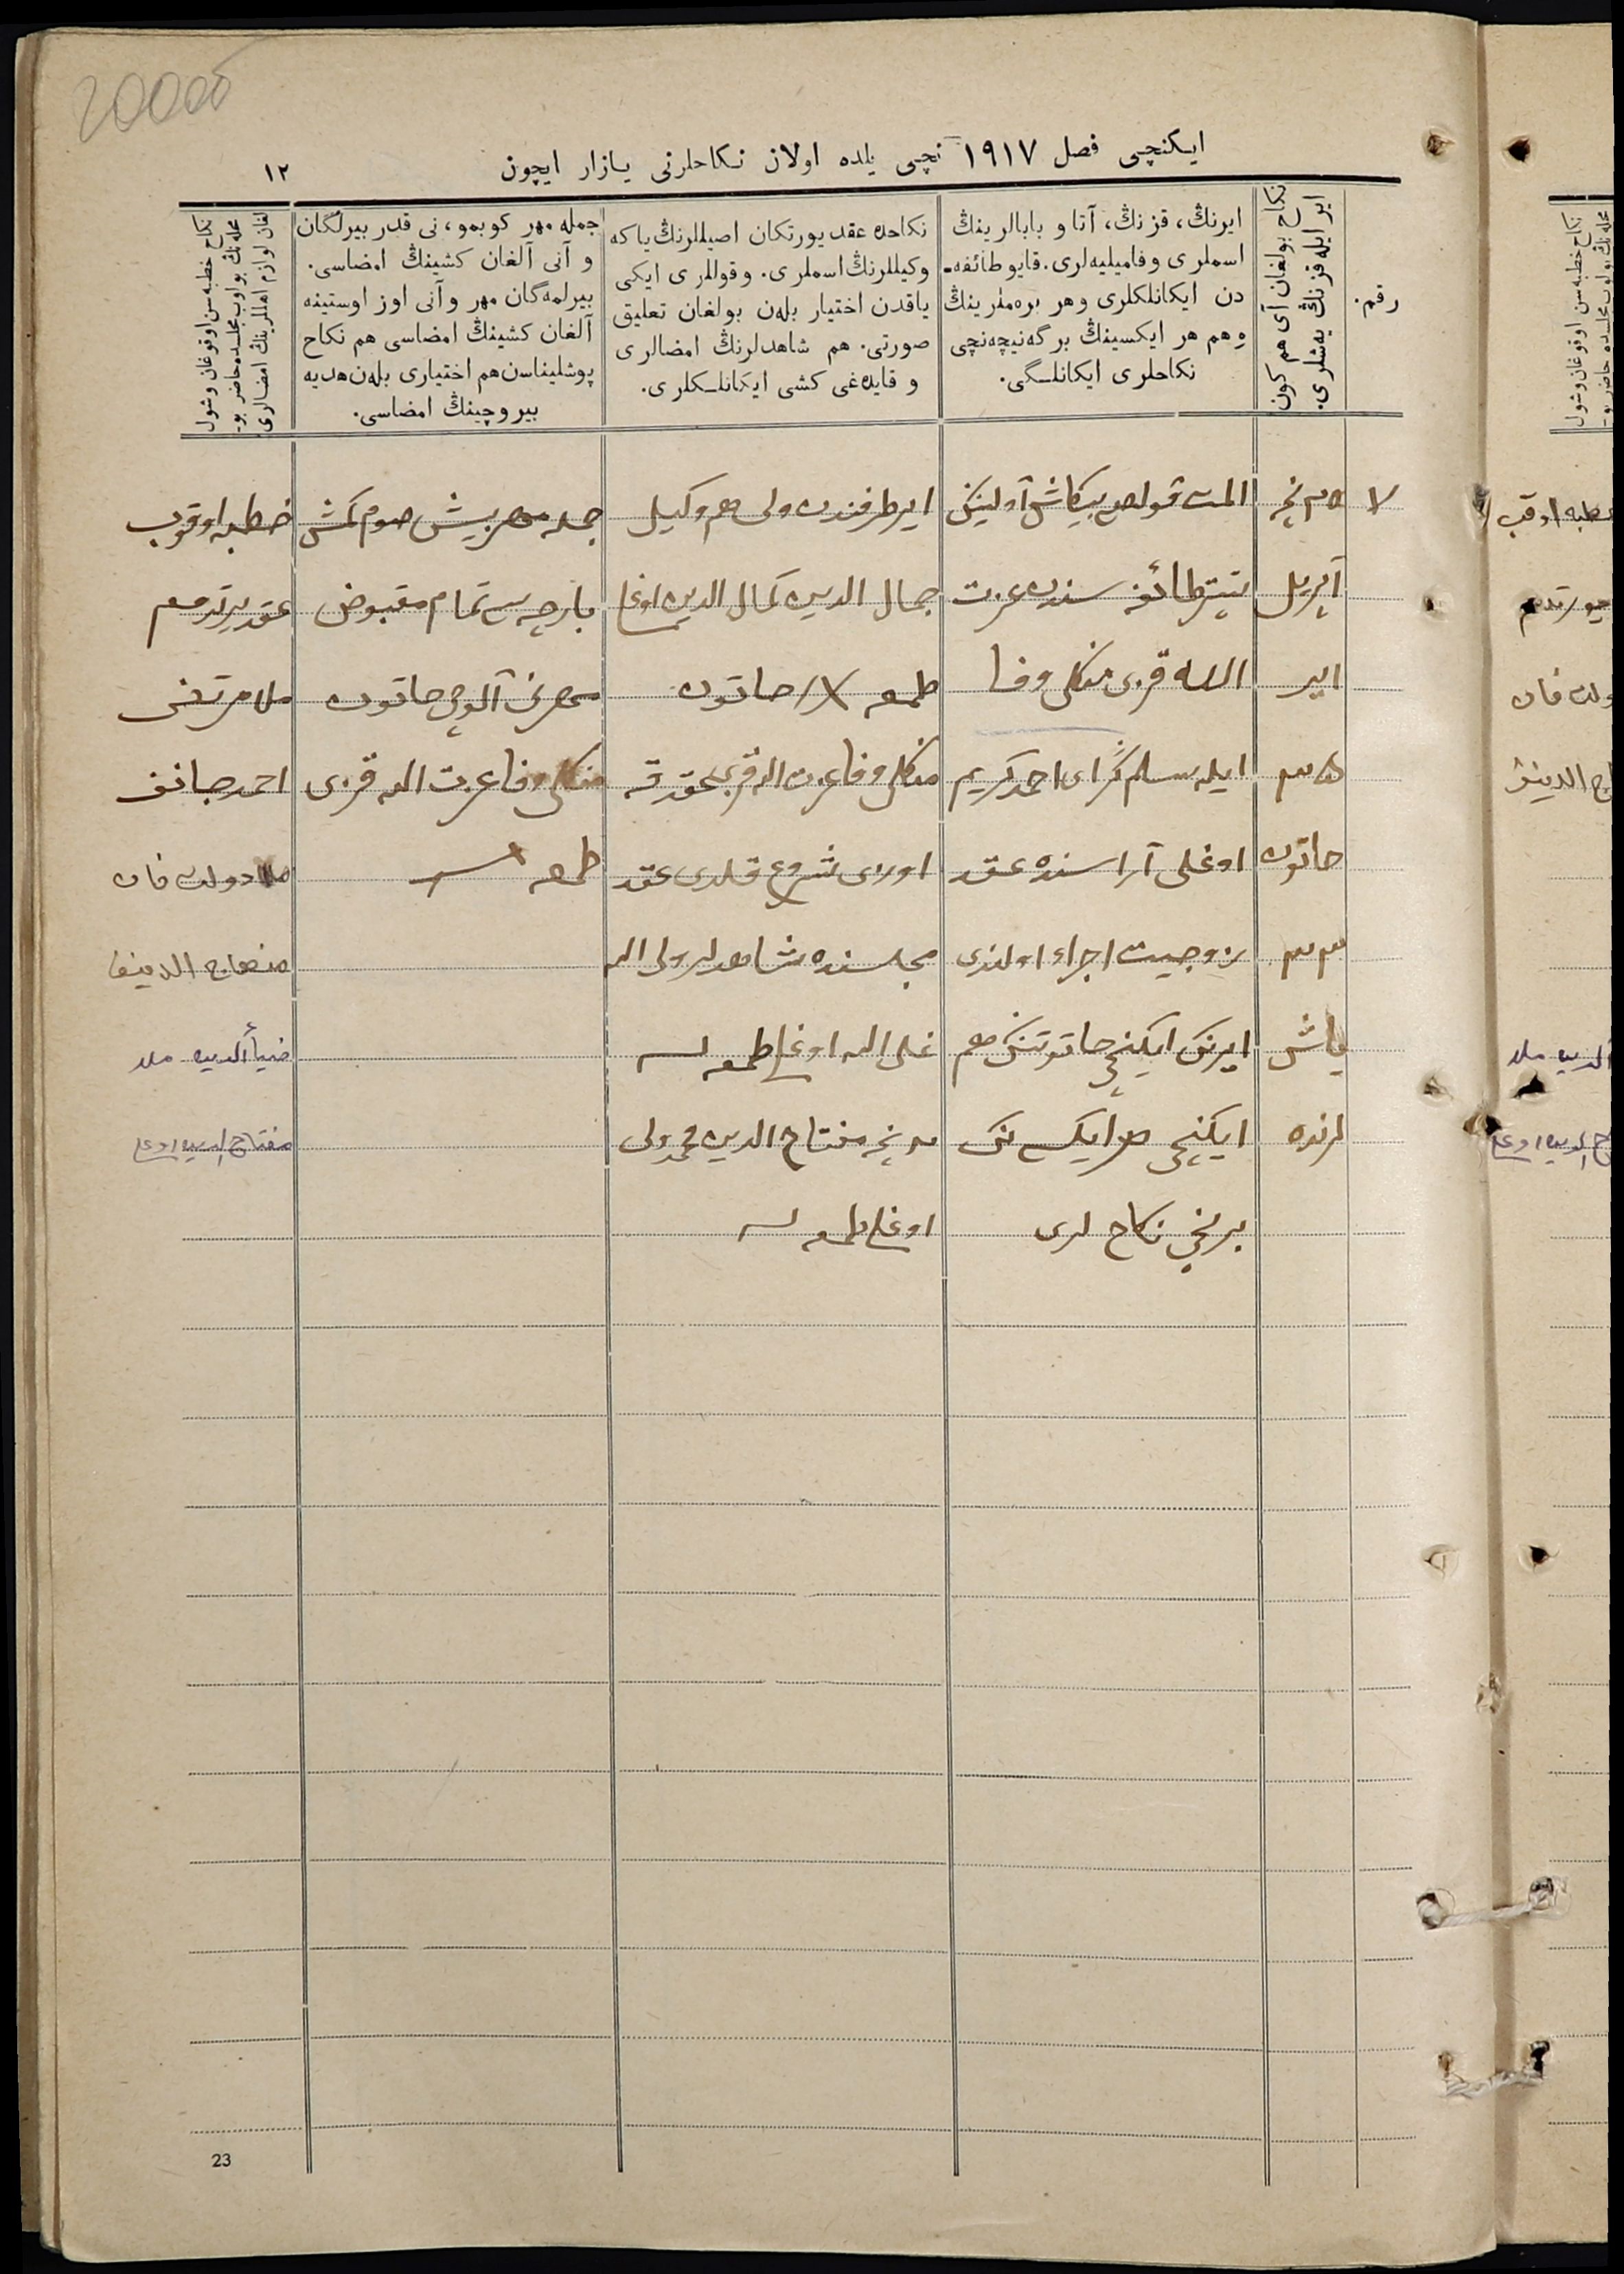 20000
ایکنچی فصل ١٩١٧ نچی یلده اولان نکاحلرنی یازار ایچون
١٢
رقم.
نکاح بولغان آی هم کون
ایر ایله قزنڭ یه‌شلری.
ایرنڭ، قزنڭ، آتا و بابالرینڭ
اسملری وفامیلیه‌لری. قایو طائفه‌ـ
دن ایکانلکلری وهر بره‌ملرینڭ
وِ هم هر ایکسینڭ برگه‌نیچه‌نچی
نکاحلری ایکانلـگی.
نکاحده عقد یورتکان اصیللرنڭ یاکه
وکیللرنڭ اسملری. وقوللری ایکی
یاقدن اختیار بله‌ن بولغان تعلیق
صورتی. هم شاهدلرنڭ امضالری
و قایده‌غی کشی ایکانلـکلری.
جمله مهر کوبمو، نی قدر بیرلگان
و آنی آلغان کشینڭ امضاسی.
بیرلمه‌گان مهر وآنی اوز اوستینه
آلغان کشینڭ امضاسی هم نکاح
پوشلیناسن هم اختیاری بله‌ن هدیه
بیروچینڭ امضاسی.
نکاح خطبه سن اوقوغان وشول
محله نڭ بولوب مجلسده حاضر بوـ
لغان لوازم اهللرینڭ امضالری
٧
٢٥ نچی
آپریل
ایر
٣٥
خاتون
٣٣
یاش
لرنده
آولینڭ
تیبتر طائفه سندن عزت
الله قزی منکلی وفا
ایله سلم گرای احمد کریم
اوغلی آراسنده عقد
زوجیت اجراء اولندی
ایرنڭ ایکنچی خاتوننڭ هم
ایکنچی هر ایکسی نڭ
برنچی نکاح لری
ایر طرفندن ولی هم وکیل
جمال الدین کمال الدین اوغلی
طمغه خاتون
منکلی وفا عزت الله قزی عقدقه
اوزی شروع قلدی عقد
مجلسنده شاهدلر ولی الله
علی الله اوغلی طمغه
مفتاح الدین محمد ولی
اوغلی طمغه
جمله مهر بیش صوم کمش
بارچه سی تمام مقبوض
مهرنی آلوچی خاتون
منکلی وفا عزت الله قزی
طمغه
خطبه اوقوب
عقد یورتدم
ملا مرتضی
احمدجانف
ملا دولت خان
منهاج الدینف
ضیاألدین ملا
مفتاح الدین اوغلی
23